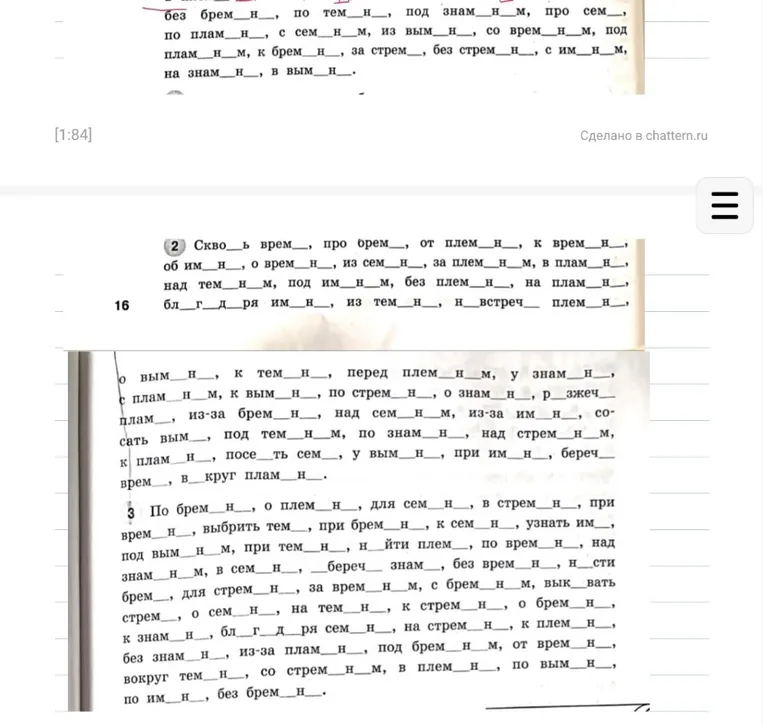 без брем__н__, по тем__н__, под знам__н__м, про сем__,
по плам__н__, с сем__н__м, из вым__н__, со врем__н__м, под
плам__н__м, к брем__н__, за стрем__, без стрем__н__, с им__н__м,
на знам__н__, в вым__н__.
[1:84]
Сделано в chattern.ru
2 Скво__ь врем__, про брем__, от плем__н__, к врем__н__,
об им__н__, о врем__н__, из сем__н__, за плем__н__м, в плам__н__,
над тем__н__м, под им__н__м, без плем__н__, на плам__н__,
16 бл__г__д__ря им__н__, из тем__н__, н__встреч__ плем__н__,
о вым__н__, к тем__н__, перед плем__н__м, у знам__н__,
с плам__н__м, к вым__н__, по стрем__н__, о знам__н__, р__зжеч__
плам__, из-за брем__н__, над сем__н__м, из-за им__н__, со-
сать вым__, под тем__н__м, по знам__н__, над стрем__н__м,
к плам__н__, посе__ть сем__, у вым__н__, при им__н__, береч__
врем__, в__круг плам__н__.
3 По брем__н__, о плем__н__, для сем__н__, в стрем__н__, при
врем__н__, выбрить тем__, при брем__н__, к сем__н__, узнать им__,
под вым__н__м, при тем__н__, н__йти плем__, по врем__н__, над
знам__н__м, в сем__н__, __береч__ знам__, без врем__н__, н__сти
брем__, для стрем__н__, за врем__н__м, с брем__н__м, вык__вать
стрем__, о сем__н__, на тем__н__, к стрем__н__, о брем__н__,
к знам__н__, бл__г__д__ря сем__н__, на стрем__н__, к плем__н__,
без знам__н__, из-за плам__н__, под брем__н__м, от врем__н__,
вокруг тем__н__, со стрем__н__м, в плем__н__, по вым__н__,
по им__н__, без брем__н__.